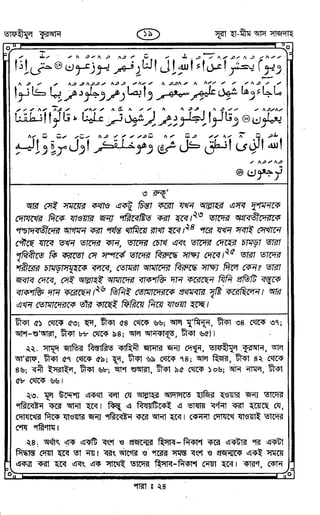 তাফহীমুল কুরআন
১৯
সূরা হা-মীম আস সাজদাহ
وَيَوْمَ يُحْشَرُ أَعْدَاءُ اللَّهِ إِلَى النَّارِ فَهُمْ يُوزَعُونَ ﴿١٩﴾ حَتَّىٰ إِذَا
مَا جَاءُوهَا شَهِدَ عَلَيْهِمْ سَمْعُهُمْ وَأَبْصَارُهُمْ وَجُلُودُهُمْ بِمَا كَانُوا
يَعْمَلُونَ ﴿٢٠﴾ وَقَالُوا لِجُلُودِهِمْ لِمَ شَهِدْتُمْ عَلَيْنَا قَالُوا أَنْطَقَنَا
اللَّهُ الَّذِي أَنْطَقَ كُلَّ شَيْءٍ وَهُوَ خَلَقَكُمْ أَوَّلَ مَرَّةٍ وَإِلَيْهِ
تُرْجَعُونَ ﴿٢١﴾
৩ রুকূ'
আর সেই সময়ের কথাও একটু চিন্তা করো যখন আল্লাহর এসব দুশমনকে
দোযখের দিকে যাওয়ার জন্য পরিবেষ্টিত করা হবে।২৩ তাদের অগ্রবর্তীদেরকে
পশ্চাদবর্তীদের আগমন করা পর্যন্ত থামিয়ে রাখা হবে।২৪ পরে যখন সবাই সেখানে
পৌঁছে যাবে তখন তাদের কান, তাদের চোখ এবং তাদের দেহের চামড়া তারা
পৃথিবীতে কি করতো সে সম্পর্কে তাদের বিরুদ্ধে সাক্ষ্য দেবে।২৫ তারা তাদের
শরীরের চামড়াসমূহকে বলবে, তোমরা আমাদের বিরুদ্ধে সাক্ষ্য দিলে কেন? তারা
জবাব দেবে, সেই আল্লাহই আমাদের বাকশক্তি দান করেছেন যিনি প্রতিটি বস্তুকে
বাকশক্তি দান করেছেন।২৬ তিনিই তোমাদেরকে প্রথমবার সৃষ্টি করেছিলেন। আর
এখন তোমাদেরকে তাঁর কাছেই ফিরিয়ে নিয়ে যাওয়া হচ্ছে।
টীকা ৫১ থেকে ৫৩; হূদ, টীকা ৫৪ থেকে ৬৬; আল মু'মিনূন, টীকা ৩৪ থেকে ৩৭;
আশ-শু'আরা, টীকা ৮৮ থেকে ৯৪; আল আনকাবূত, টীকা ৬৫)।
২২. সামূদ জাতির বিস্তারিত কাহিনী জানার জন্য দেখুন, তাফহীমুল কুরআন, আল
আ'রাফ, টীকা ৫৭ থেকে ৫৯; হূদ, টীকা ৬৯ থেকে ৭৪; আল হিজর, টীকা ৪২ থেকে
৪৬; বনী ইসরাঈল, টীকা ৬৮; আশ শুআরা, টীকা ৯৫ থেকে ১০৬; আন নামল, টীকা
৫৮ থেকে ৬৬।
২৩. মূল উদ্দেশ্য একথা বলা যে আল্লাহর আদালতে হাজির হওয়ার জন্য তাদের
পরিবেষ্টন করে আনা হবে। কিন্তু এ বিষয়টিকেই এ ভাষায় বর্ণনা করা হয়েছে যে,
দোযখের দিকে যাওয়ার জন্য পরিবেষ্টন করে আনা হবে। কেননা দোযখে যাওয়াই তাদের
শেষ পরিণাম।
২৪. অর্থাৎ এক একটি বংশ ও প্রজন্মের হিসাব-নিকাশ করে একটার পর একটা
সিদ্ধান্ত দেয়া হবে তা নয়। বরং আগের ও পরের সমস্ত বংশ ও প্রজন্মকে একই সময়ে
একত্র করা হবে এবং এক সাথেই তাদের হিসাব-নিকাশ নেয়া হবে। কারণ, কোন
পারা : ২৪